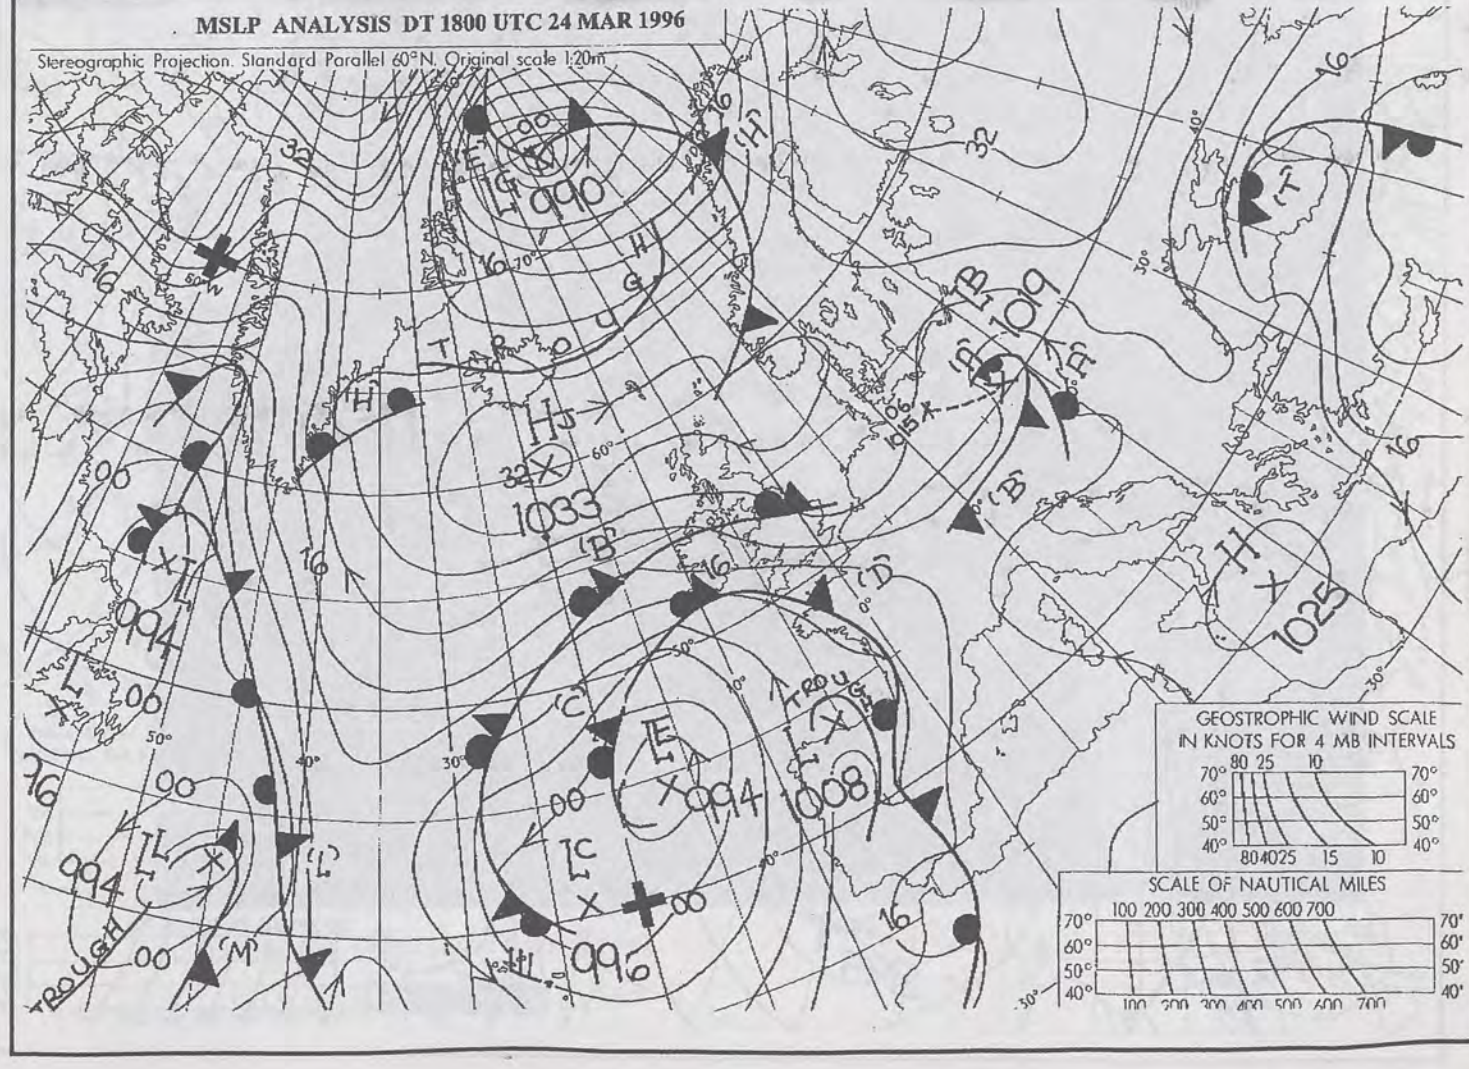 MSLP ANALYSIS DT 1800 UTC 24 MAR 1996
Stereographic Projection. Standard Parallel 60°N. Original scale 1:20m
16
32
00
'E'
LG 990
16
'H'
32
16
40°
'T'
50°W
16
16
70°
TROUGH
30°
'B'
LB
1019
'A'
'A'
1006
1015
'H'
HJ
32
60°
1033
00
16
'B'
16
'D'
0°
0°
'B'
16
H
1025
30°
LI
994
L
00
996
50°
40°
30°
'C'
50°
TROUGH
LE
994
L
1008
00
00
LL
994
TROUGH
00
'L'
'M'
LC
996
00
40°
16
GEOSTROPHIC WIND SCALE
IN KNOTS FOR 4 MB INTERVALS
80 25 10
70° 70°
60° 60°
50° 50°
40° 40°
80 40 25 15 10
SCALE OF NAUTICAL MILES
100 200 300 400 500 600 700
70° 70°
60° 60°
50° 50°
40° 40°
100 200 300 400 500 600 700
30°